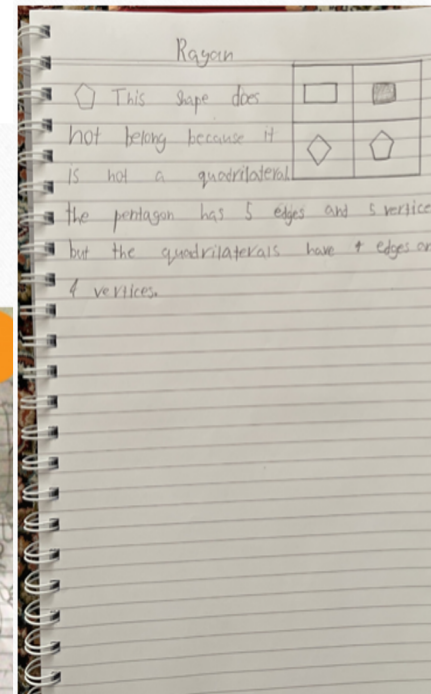 Rayan
This shape does
not belong because it
is not a quadrilateral
the pentagon has 5 edges and 5 vertice
but the quadrilaterals have 4 edges an
4 vertices.